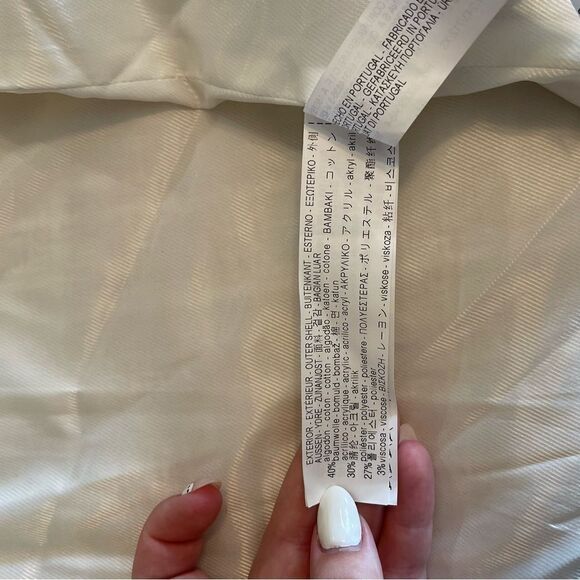 HECHO EN PORTUGAL - FABRICADO E
PORTUGAL - GEFABRICEERD IN PORTU
ΚΑΤΑΣΚΕΥΗ ΠΟΡΤΟΓΑΛΙΑ
DI PORTUGAL
EXTERIOR - EXTÉRIEUR - OUTER SHELL - BUITENKANT - ESTERNO - ΕΞΩΤΕΡΙΚΟ - 外側
AUSSEN - YDRE - ZUNANJOST - 面料 - 겉감 - BAGIAN LUAR
algodón - coton - cotton - algodão - katoen - cotone - ΒΑΜΒΑΚΙ - コットン
40% baumwolle - bomuld - bombaž - 棉 - 면 - katun
acrílico - acrylique - acrylic - acrílico - acryl - ΑΚΡΥΛΙΚΟ - アクリル - akryl - akril
30% 腈纶 - 아크릴 - akrilik
poliéster - polyester - poliestere - ΠΟΛΥΕΣΤΕΡΑΣ - ポリエステル - 聚酯纤
27% 폴리에스터 - poliester
3% viscosa - viscose - ΒΙΣΚΟΖΗ - レーヨン - viskose - viskoza - 粘纤 - 비스코스